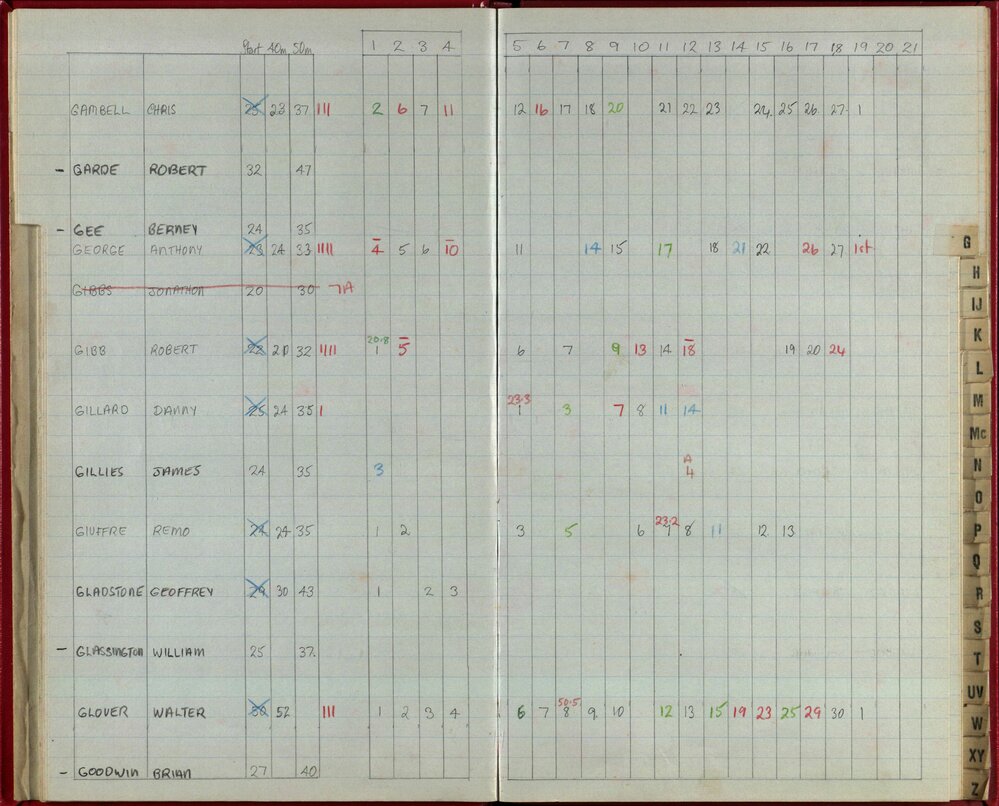 Start 40m 50m 1 2 3 4 5 6 7 8 9 10 11 12 13 14 15 16 17 18 19 20 21
GAMBELL CHRIS 25 23 37 III 2 6 7 11 12 16 17 18 20 21 22 23 24 25 26 27 1
- GARDE ROBERT 32 47
- GEE BERNEY 24 35
GEORGE ANTHONY 23 24 33 IIII 4 5 6 10 11 14 15 17 18 21 22 26 27 1st
GIBBS JONATHON 20 30 7A
20.8
GIBB ROBERT 22 20 32 IIII 1 5 6 7 9 13 14 18 19 20 24
23.3
GILLARD DANNY 25 24 35 I 1 3 7 8 11 14
A
GILLIES JAMES 24 35 3 4
23.2
GIUFFRE REMO 24 24 35 1 2 3 5 6 7 8 11 12 13
GLADSTONE GEOFFREY 29 30 43 1 2 3
- GLASSINGTON WILLIAM 25 37.
50.5
GLOVER WALTER 50 52 III 1 2 3 4 6 7 8 9 10 12 13 15 19 23 25 29 30 1
- GOODWIN BRIAN 27 40
G
H
IJ
K
L
M
Mc
N
O
P
Q
R
S
T
UV
W
XY
Z